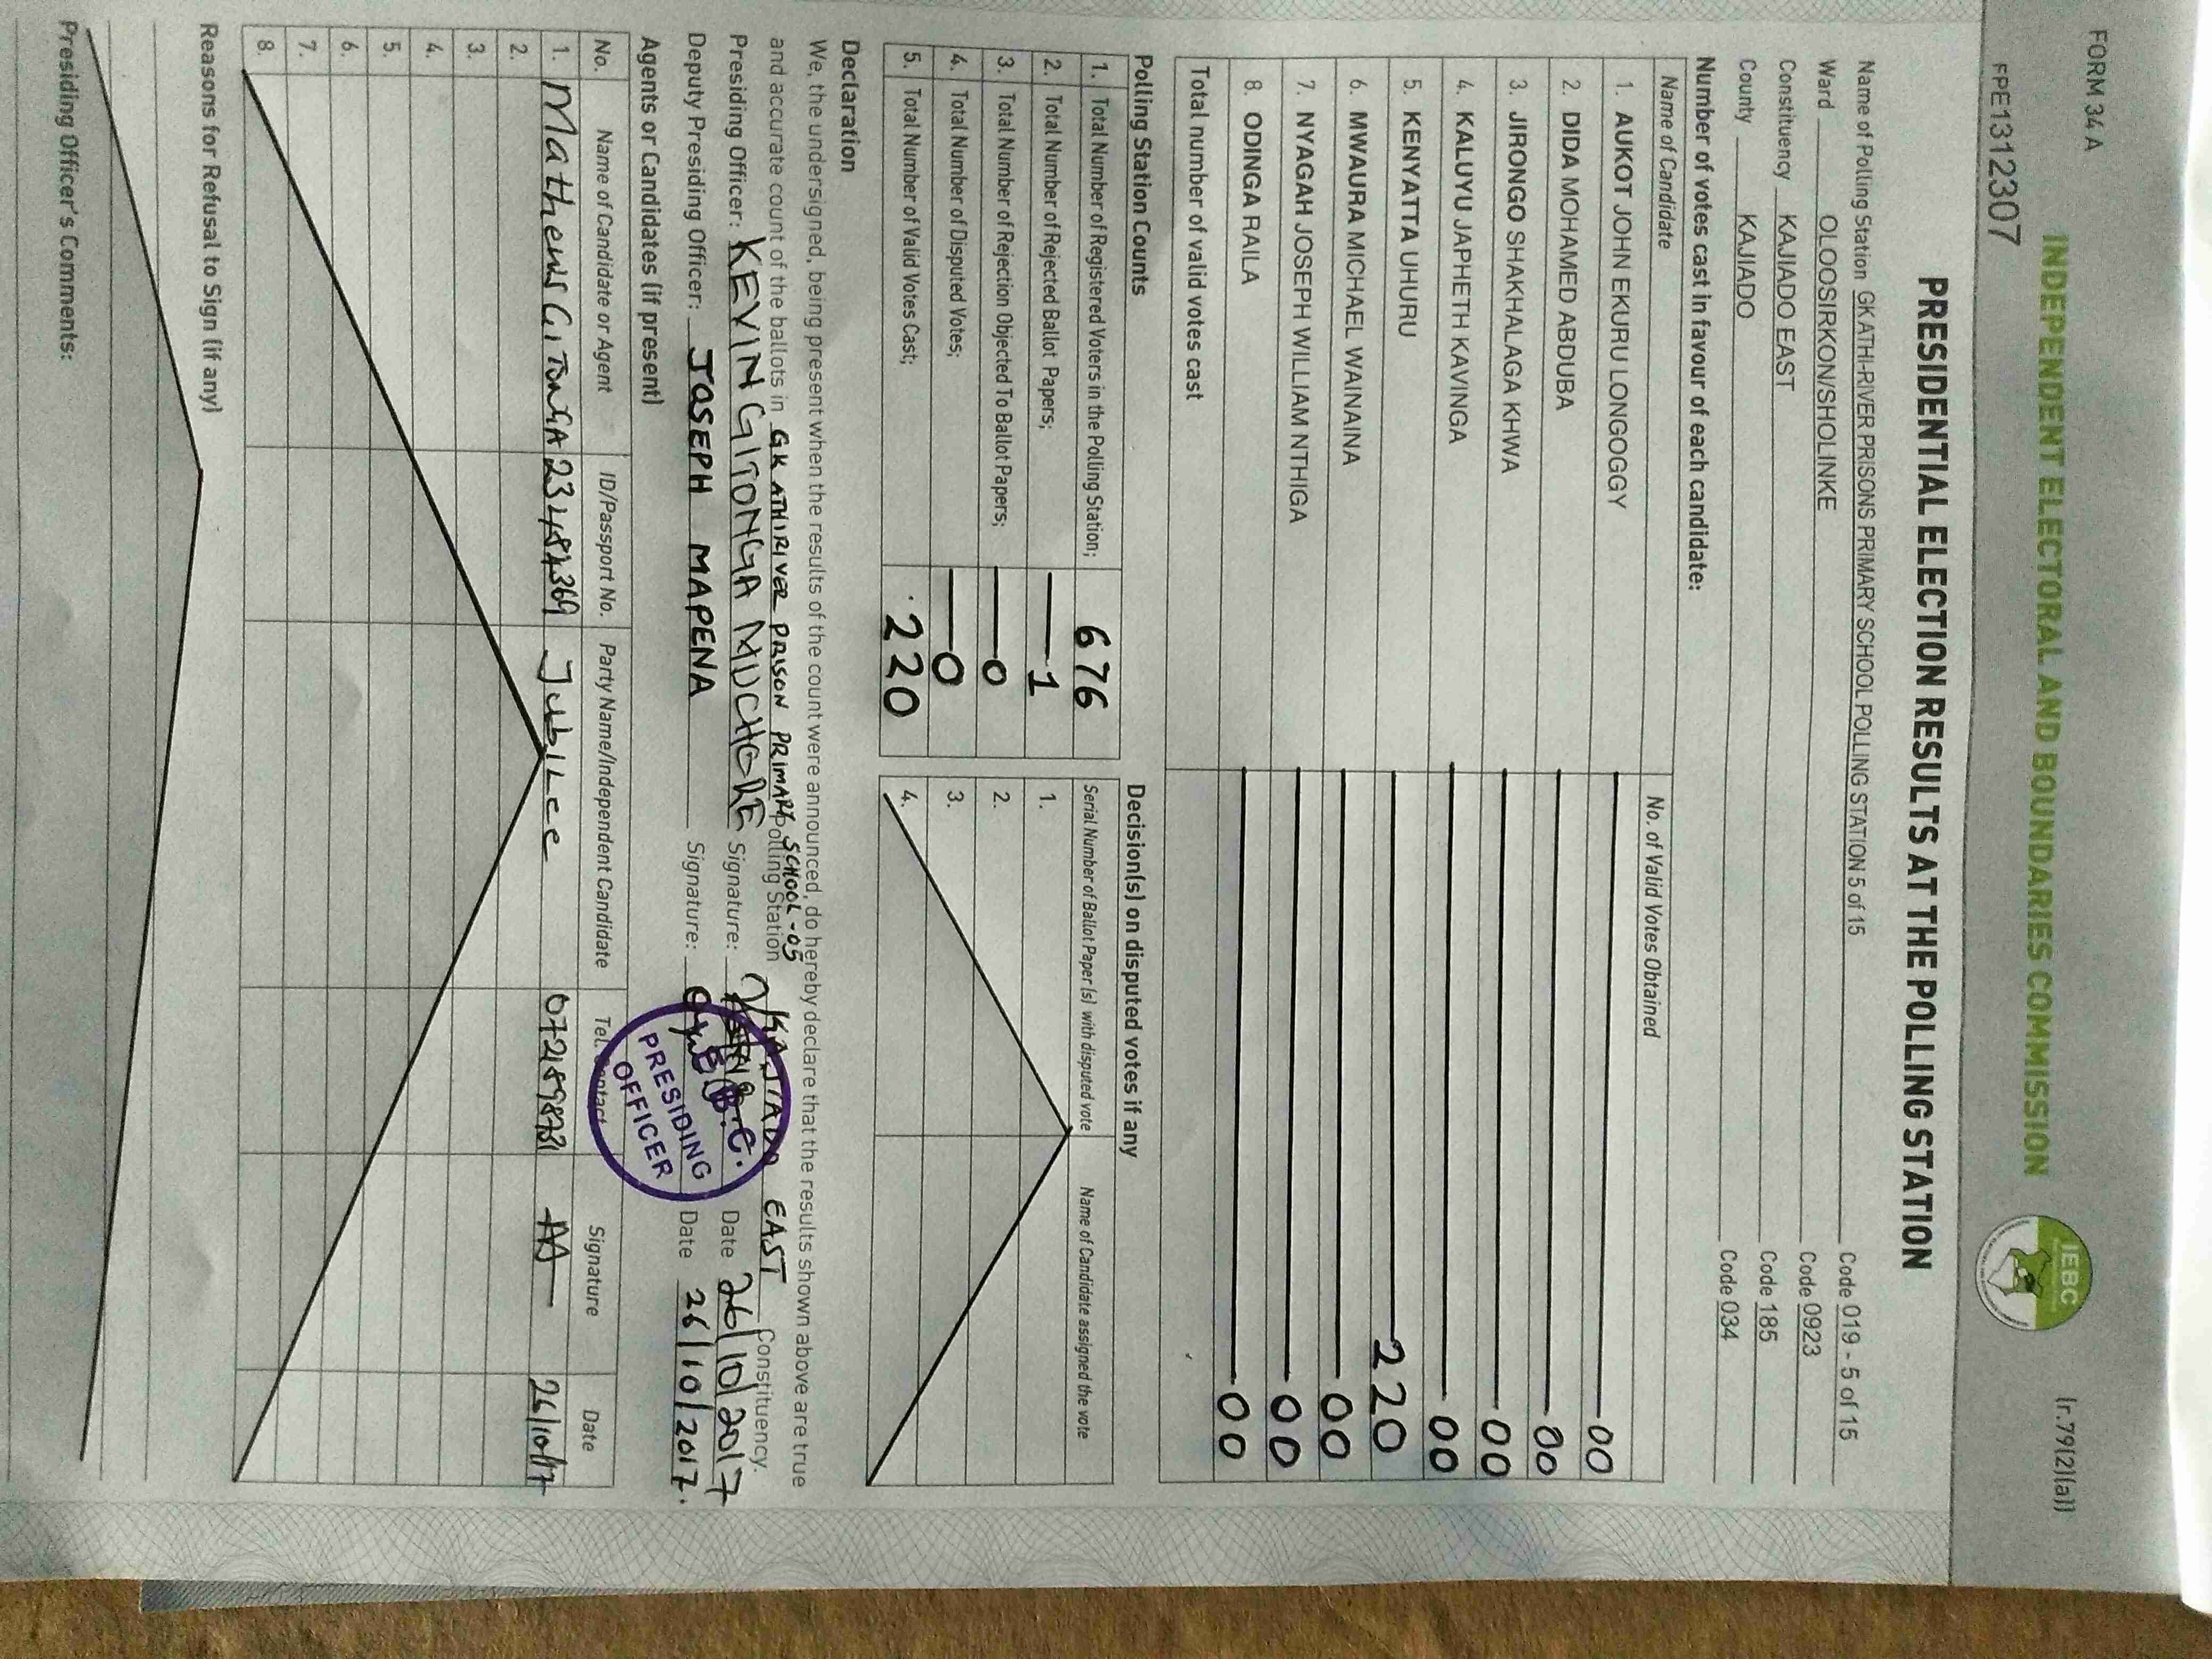 FORM 34 A
(r.79(2)(a))
INDEPENDENT ELECTORAL AND BOUNDARIES COMMISSION
IEBC
FPE1312307
PRESIDENTIAL ELECTION RESULTS AT THE POLLING STATION
Name of Polling Station GK ATHI-RIVER PRISONS PRIMARY SCHOOL POLLING STATION 5 of 15 Code 019 - 5 of 15
Ward OLOOSIRKON/SHOLINKE Code 0923
Constituency KAJIADO EAST Code 185
County KAJIADO Code 034
Number of votes cast in favour of each candidate:
Name of Candidate No. of Valid Votes Obtained
1. AUKOT JOHN EKURU LONGOGGY 00
2. DIDA MOHAMED ABDUBA 00
3. JIRONGO SHAKHALAGA KHWA 00
4. KALUYU JAPHETH KAVINGA 00
5. KENYATTA UHURU 220
6. MWAURA MICHAEL WAINAINA 00
7. NYAGAH JOSEPH WILLIAM NTHIGA 00
8. ODINGA RAILA 00
Total number of valid votes cast
Polling Station Counts
1. Total Number of Registered Voters in the Polling Station; 676
2. Total Number of Rejected Ballot Papers; 1
3. Total Number of Rejection Objected To Ballot Papers; 0
4. Total Number of Disputed Votes; 0
5. Total Number of Valid Votes Cast; 220
Decision(s) on disputed votes if any
Serial Number of Ballot Paper (s) with disputed vote Name of Candidate assigned the vote
1.
2.
3.
4.
Declaration
We, the undersigned, being present when the results of the count were announced, do hereby declare that the results shown above are true
and accurate count of the ballots in GK ATHIRIVER PRISON PRIMARY SCHOOL - 05 Polling Station KAJIADO EAST Constituency.
Presiding Officer: KEVIN GITONGA MUCHORE Signature: Date 26/10/2017
Deputy Presiding Officer: JOSEPH MAPENA Signature: Date 26/10/2017.
PRESIDING
OFFICER
Agents or Candidates (if present)
No. Name of Candidate or Agent ID/Passport No. Party Name/Independent Candidate Tel. Contact Signature Date
1. Mathews GITONGA Jubilee 26/10/17
2.
3.
4.
5.
6.
7.
8.
Reasons for Refusal to Sign (if any)
Presiding Officer's Comments: